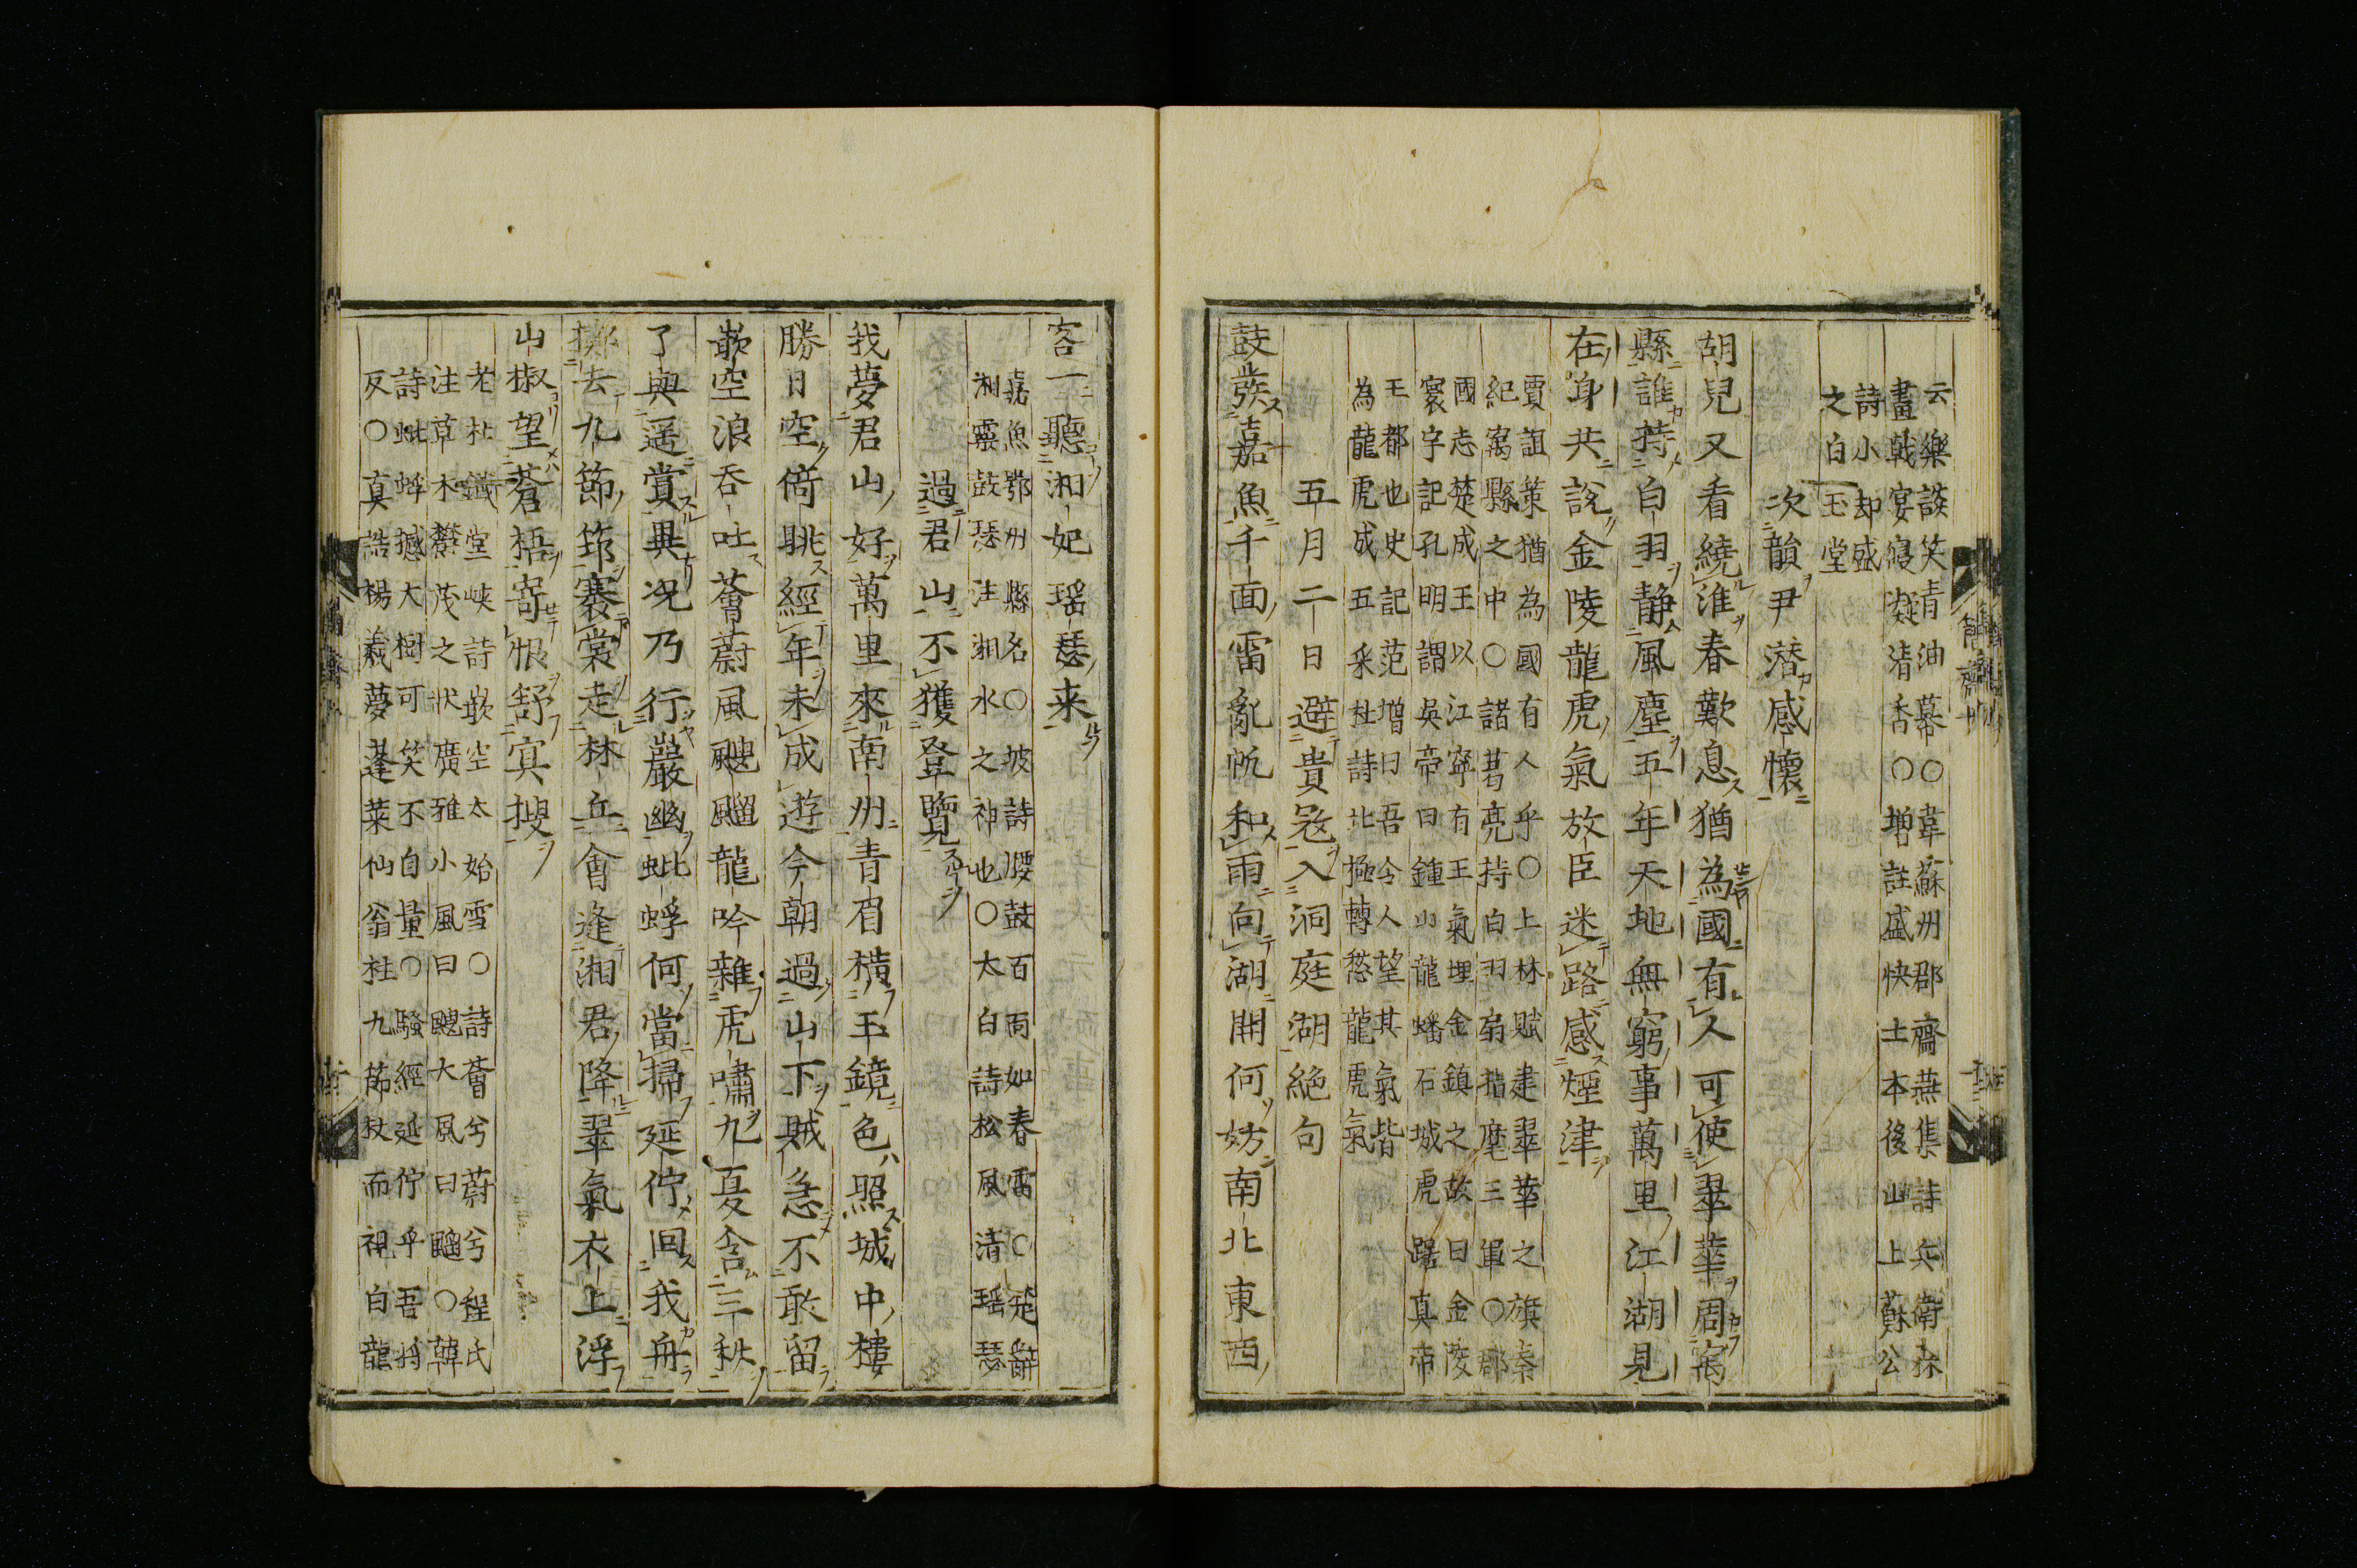 云樂談笑青油幕○韋蘇州郡齋燕集詩兵衛森
畫戟宴寢凝清香○増註盛快士本後山上蘇公
詩小却盛
之白玉堂
次韻尹潜感懷
胡兒又看繞淮春歎息猶為國有人可使翠華周㝢
縣誰持白羽静風塵五年天地無窮事萬里江湖見
在身共說金陵龍虎氣放臣迷路感煙津
賈誼策猶為國有人乎○上林賦建翠華之旗秦
紀㝢縣之中○諸葛亮持白羽扇指麾三軍○郡
國志楚成王以江寧有王氣埋金鎮之故曰金陵
寰宇記孔明謂吳帝曰鍾山龍蟠石城虎踞真帝
王都也史記范増曰吾令人望其氣皆
為龍虎成五采杜詩北極轉愁龍虎氣
五月二日避貴冦入洞庭湖絶句
鼓發嘉魚千面雷亂帆和雨向湖開何妨南北東西
客一聽湘妃瑶瑟来
嘉魚鄂州縣名○坡詩腰鼓百面如春雷○楚辭
湘靈鼓瑟注湘水之神也○太白詩松風清瑶瑟
過君山不獲登覽
我夢君山好萬里來南州青眉横玉鏡色照城中樓
勝日空倚眺經年未成遊今朝過山下賊急不敢留
嵌空浪吞吐薈蔚風颼飀龍吟雜虎嘯九夏含三秋
了與遥賞異况乃行巖幽蚍蜉何當掃延佇回我舟
擲去九節筇褰裳走林丘會逢湘君降翠氣衣上浮
山椒望蒼梧寄恨舒冥搜
老杜鐵堂峡詩嵌空太始雪○詩薈兮蔚兮程氏
注草木欝茂之状廣雅小風曰颼大風曰飀○韓
詩蚍蜉撼大樹可笑不自量○騷經延佇乎吾將
反○真誥楊羲夢蓬莱仙翁拄九節杖而視白龍